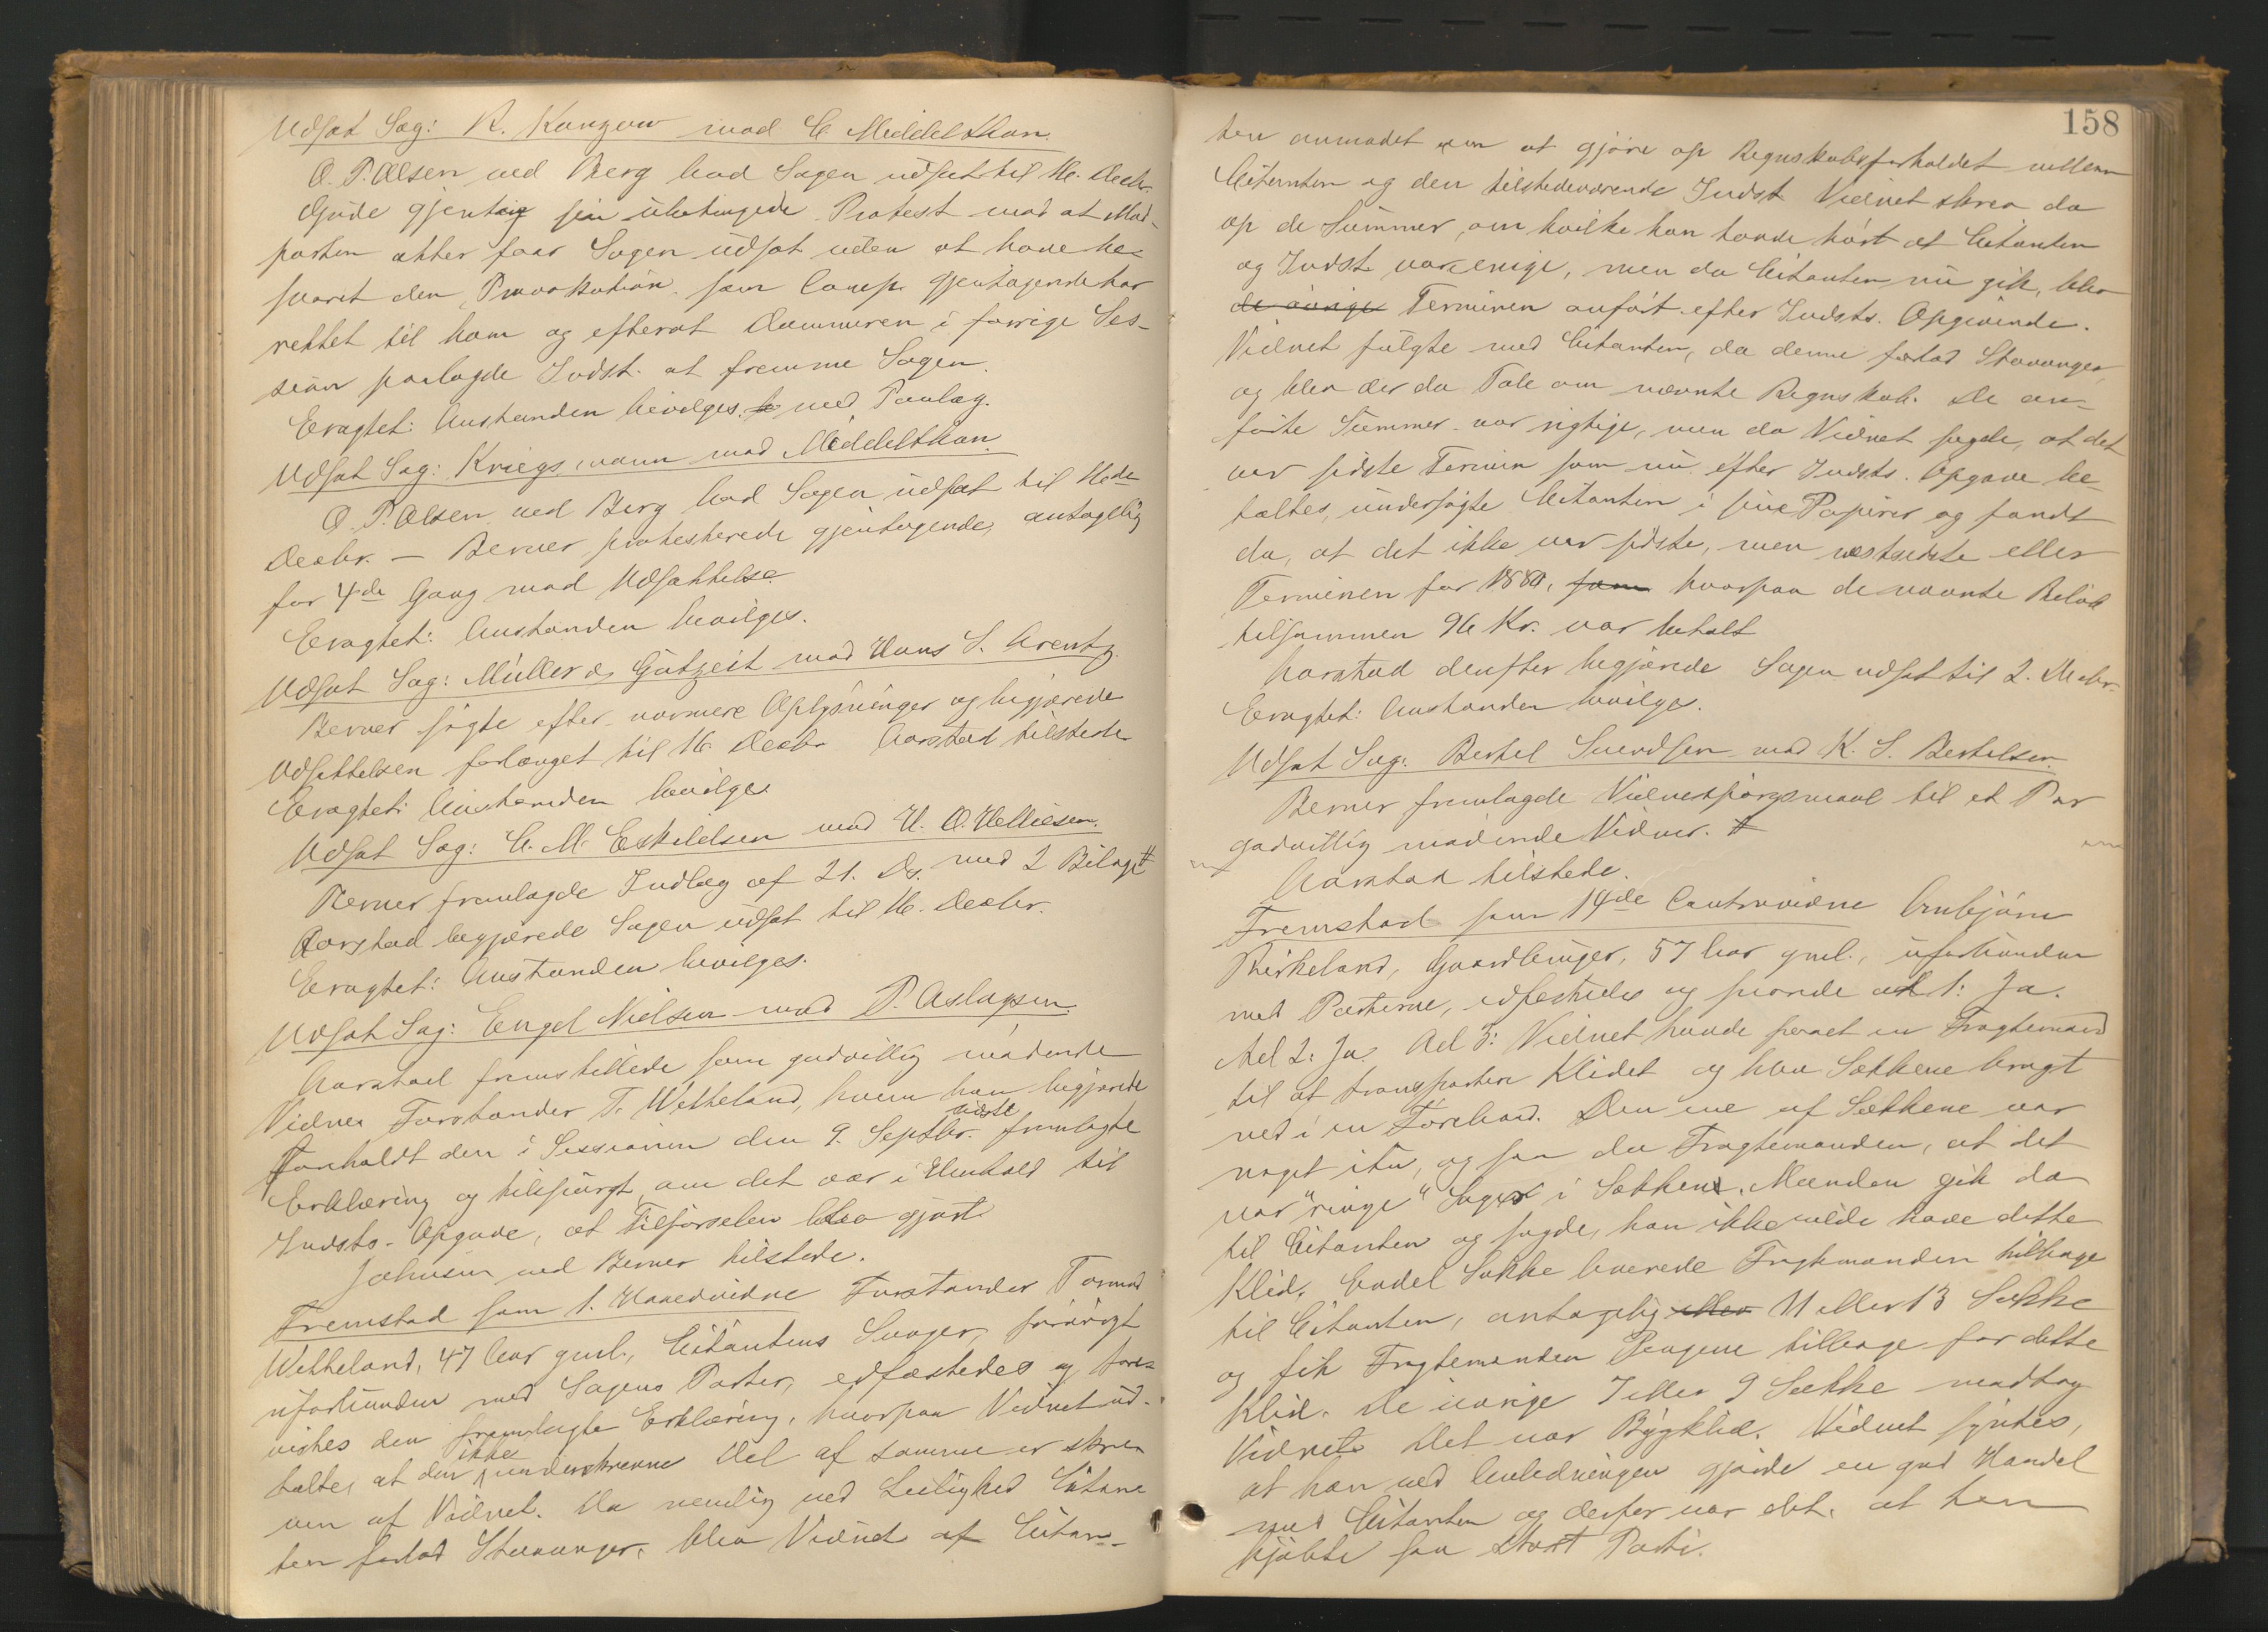 Udsat Sag: R. Kanzow mod C. Middelthon.
O. P. Olsen ved Berg bad Sagen udsat til 16. Decbr.
Gjude gjentog sin ubetingede Protest mod at Mod-
parten atter faar Sagen udsat uden at have be-
svaret den Provokation som Comp. gjentagende har
rettet til ham og efterat Dommeren i forrige Ses-
sion paalagde Indst. at fremme Sagen.
Eragtet: Anstanden bevilges med Paalæg.
Udsat Sag: Kriegsmann mod Middelthon.
O. P. Olsen ved Berg bad Sagen udsat til 16de
Decbr. — Berner protesterede gjentagende, antagelig
for 4de Gang mod Udsættelse
Eragtet: Anstanden bevilges.
Udsat Sag: Müller & Gützeit mod Hans S. Arentz.
Berner søgte efter nærmere Oplysninger og begjærede
Udsættelsen forlænget til 16 Decbr. Aarstad tilstede
Eragtet: Anstanden bevilges
Udsat Sag: C. M. Eskildsen mod H. O. Helliesen.
Berner fremlagde Indlæg af 21. Ds. med 2 Bilag #
Aarstad begjærede Sagen udsat til 16. Decbr.
Eragtet: Anstanden bevilges.
Udsat Sag: Engel Nielsen mod P. Aslagsen.
Aarstad fremstillede som godvillig mødende
Vidne Forstander T. Wetteland, hvem han begjærede
foreholdt den i Sessionen den 9. Septbr. sidste fremlagte
Erklæring og tilspurgt, om det var i Henhold til
Indsts. Opgave, at Tilførselen blev gjort.
Johnsen ved Berner tilstede.
Fremstod som 1. Hovedvidne Forstander Tormod
Wetteland, 47 Aar gml., Citantens Svoger, forøvrigt
uforbunden med Sagens Parter, edfæstedes og fore-
vistes den fremlagte Erklæring, hvorpaa Vidnet ud-
talte, at den ikke underskrevne Del af samme er skre-
ven af Vidnet. Da nemlig ved Leilighed Citan-
ten forlod Stavanger, blev Vidnet af Citan-
158
ten anmodet om at gjøre op Regnskabsforholdet mellem
Citanten og den tilstedeværende Indst. Vidnet skrev da
op de Summer, om hvilke han havde hørt at Citanten
og Indst. var enige, men da Citanten nu gik, blev
de øvrige Terminen anført efter Indsts. Opgivende.
Vidnet fulgte med Citanten, da denne forlod Stavanger,
og blev der da Tale om nævnte Regnskab. De an-
førte Summer var rigtige, men da Vidnet sagde, at det
var sidste Termin som nu efter Indsts. Opgave be-
taltes, undersøgte Citanten i sine Papirer og fandt
da, at det ikke var sidste, men næstsidste eller
Terminen for 1880, som hvorpaa de nævnte Beløb
tilsammen 96 Kr. var betalt
Aarstad derefter begjærede Sagen udsat til 2. Decbr.
Eragtet: Anstanden bevilges.
Udsat Sag: Bertel Svendsen mod K. S. Bertelsen.
Berner fremlagde Vidnespørgsmaal til et Par
godvillig mødende Vidner. #
Aarstad tilstede.
Fremstod som 14de Contravidne Anbjørn
Birkeland, Gaardbruger, 57 Aar gml., uforbunden
med Parterne, edfæstedes og svarede ad 1: Ja.
Ad 2: Ja. Ad 3: Vidnet havde faaet en Fragtemand
til at transportere Klidet og blev Sækkene bragt
ned i en Førebaad. Den ene af Sækkene var
noget itu, og saa da Fragtemanden, at det
var "ringe" Sager i Sækken. Manden gik da
til Citanten og sagde, han ikke vilde have dette
Klid. Endel Sække leverede Fragtemanden tilbage
til Citanten, antagelig eller 11 eller 13 Sække
og fik Fragtemanden Pengene tilbage for dette
Klid. De øvrige 7 eller 9 Sække modtog
Vidnet. Det var Bygklid. Vidnet syntes,
at han ved Anledningen gjorde en god Handel
med Citanten og derfor var det, at han
kjøbte saa stort Parti.